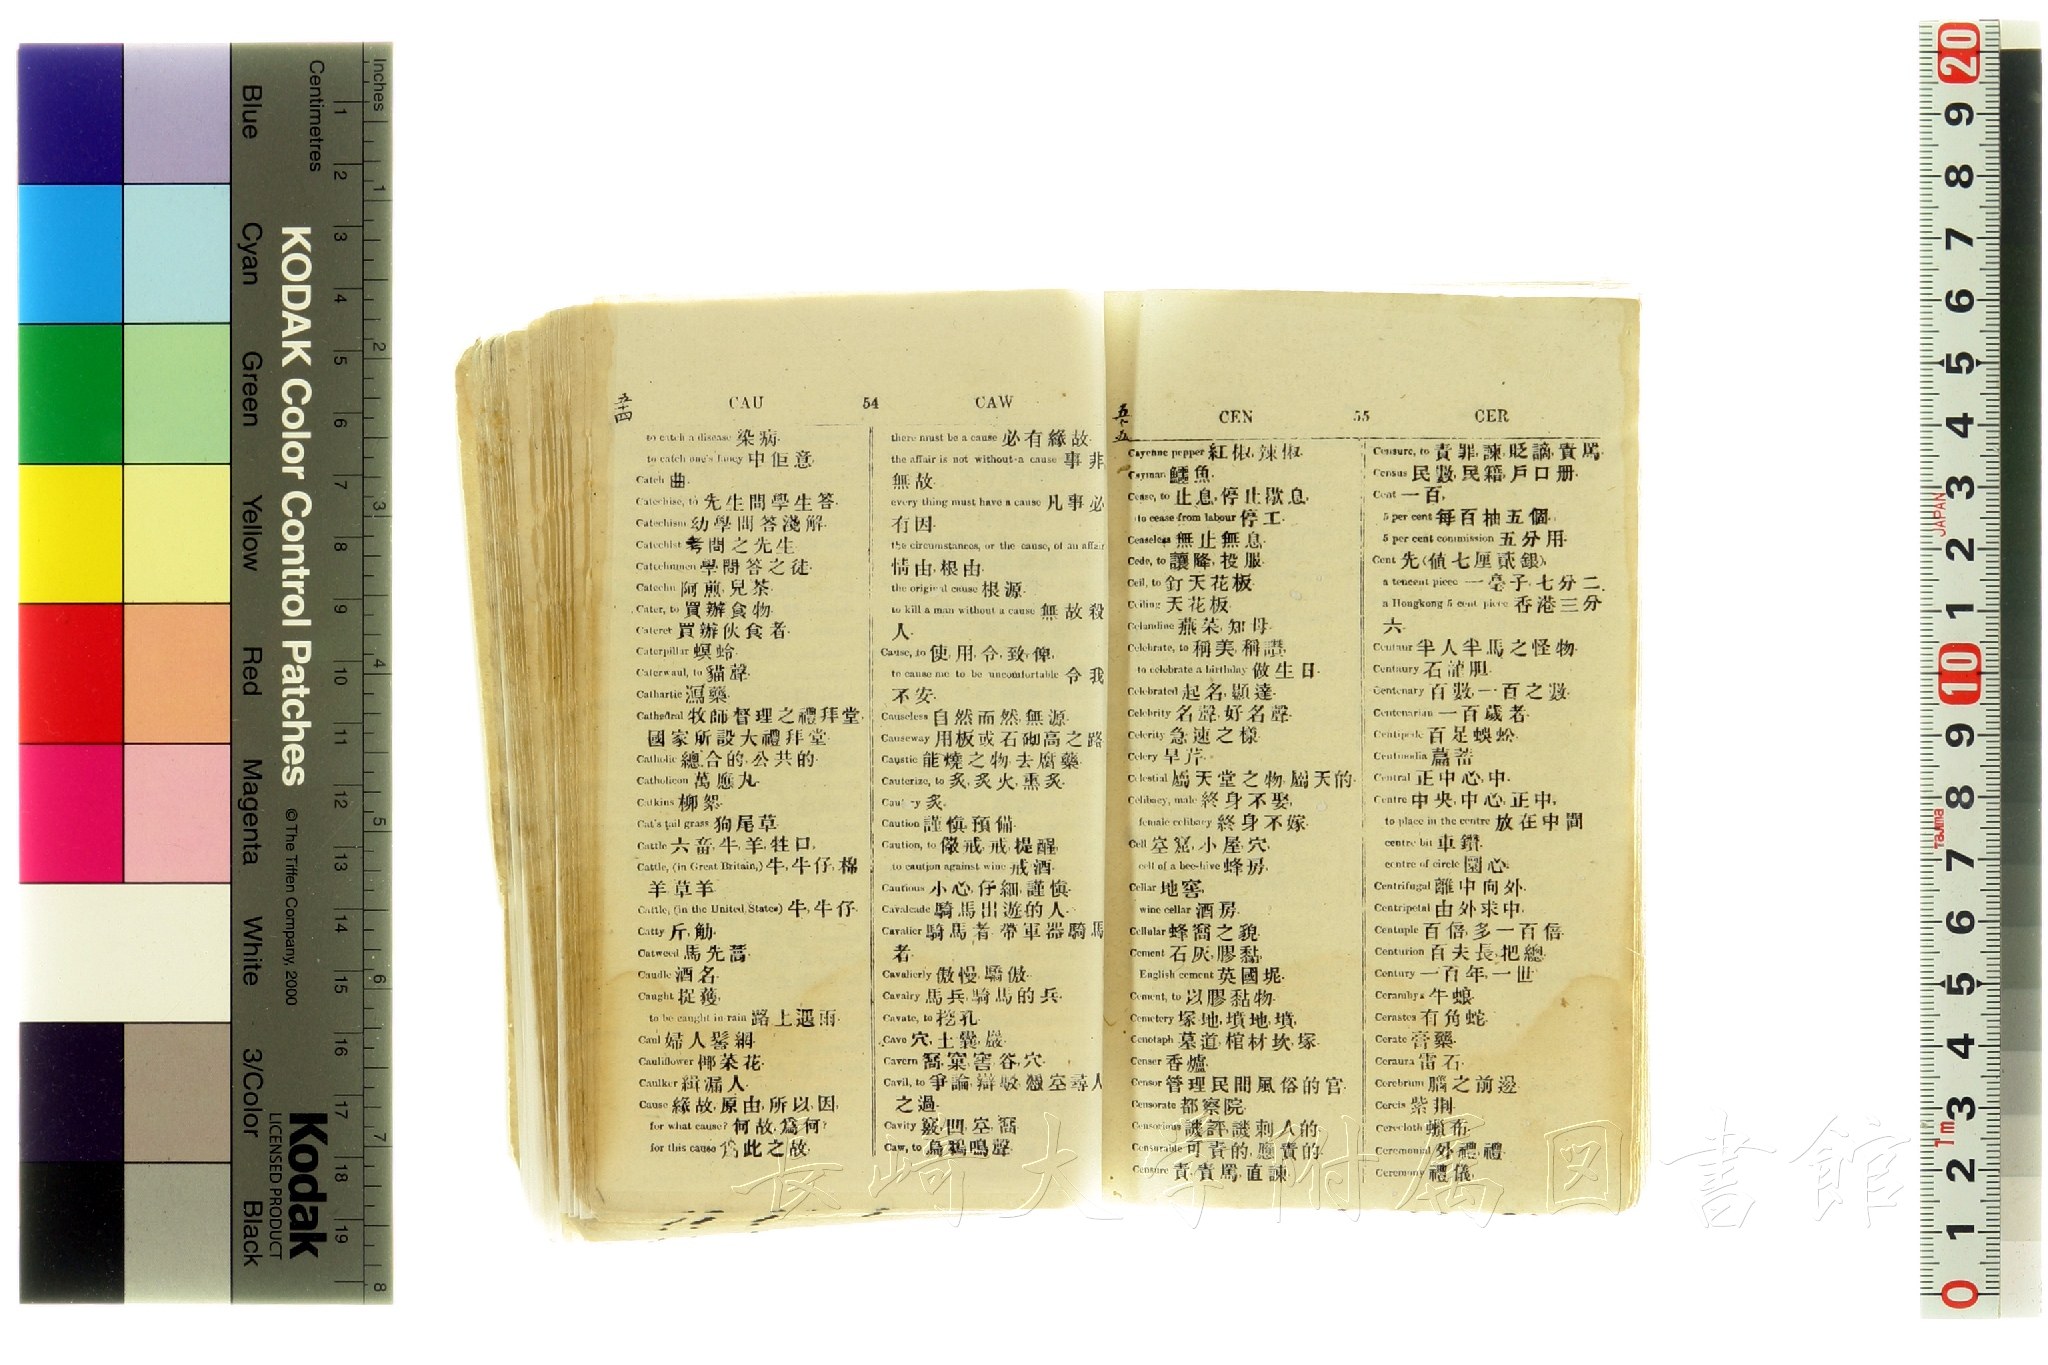 Inches
Centimetres
Blue
Cyan
Green
Yellow
Red
Magenta
White
3/Color
Black
KODAK Color Control Patches
© The Tiffen Company, 2000
Kodak
LICENSED PRODUCT
五十四
CAU 54 CAW
to catch a disease 染病.
to catch one's fancy 中佢意.
Catch 曲.
Catechise, to 先生問學生答.
Catechism 幼學問答淺解.
Catechist 考問之先生
Catechumen 學問答之徒.
Catechu 阿煎, 兒茶.
Cater, to 買辦食物.
Caterer 買辦伙食者.
Caterpillar 螟蛉.
Caterwaul, to 貓聲.
Cathartic 瀉藥.
Cathedral 牧師督理之禮拜堂,
國家所設大禮拜堂.
Catholic 總合的, 公共的.
Catholicon 萬應丸.
Catkins 柳絮.
Cat's tail grass 狗尾草.
Cattle 六畜, 牛, 羊, 牲口.
Cattle, (in Great Britain,) 牛, 牛仔, 棉
羊草羊.
Cattle, (in the United States) 牛, 牛仔.
Catty 斤, 觔.
Catweed 馬先蒿.
Caudle 酒名.
Caught 捉獲.
to be caught in rain 路上遇雨.
Caul 婦人髻網.
Cauliflower 椰菜花.
Caulker 緝漏人.
Cause 緣故, 原由, 所以, 因,
for what cause? 何故, 爲何?
for this cause 爲此之故.
there must be a cause 必有緣故.
the affair is not without a cause 事非
無故.
every thing must have a cause 凡事必
有因.
the circumstances, or the cause, of an affair
情由, 根由.
the original cause 根源.
to kill a man without a cause 無故殺
人.
Cause, to 使, 用, 令, 致, 俾,
to cause me to be uncomfortable 令我
不安.
Causeless 自然而然, 無源.
Causeway 用板或石砌高之路
Caustic 能燒之物, 去腐藥.
Cauterize, to 炙, 炙火, 熏炙.
炙.
Caution 謹愼, 預備.
Caution, to 儆戒, 戒, 提醒.
to caution against wine 戒酒.
Cautious 小心, 仔細, 謹愼.
Cavalcade 騎馬出遊的人.
Cavalier 騎馬者, 帶軍器騎馬
者.
Cavalierly 傲慢, 驕傲.
Cavalry 馬兵, 騎馬的兵.
Cavate, to 挖孔.
Cave 穴, 土巖.
Cavern 窩, 窠, 窖, 谷, 穴.
Cavil, to 爭論, 辯駁, 憑空尋人
之過.
Cavity 竅, 凹, 空, 窩.
Caw, to 烏鴉鳴聲.
五十五
CEN 55 CER
Cayenne pepper 紅椒, 辣椒.
Cayman 鱷魚.
Cease, to 止息, 停止, 歇息,
to cease from labour 停工.
Ceaseless 無止無息.
Cede, to 讓, 降, 投服.
Ceil, to 釘天花板
Ceiling 天花板.
Celandine 燕菜, 知母.
Celebrate, to 稱美, 稱讚,
to celebrate a birthday 做生日.
Celebrated 起名, 顯達.
Celebrity 名聲, 好名聲.
Celerity 急速之樣.
Celery 旱芹.
Celestial 屬天堂之物, 屬天的.
Celibacy, male 終身不娶,
female celibacy 終身不嫁.
Cell 空窟, 小屋, 穴,
cell of a bee-hive 蜂房.
Cellar 地窖,
wine cellar 酒房.
Cellular 蜂窩之貌.
Cement 石灰, 膠黏,
English cement 英國坭.
Cement, to 以膠黏物.
Cemetery 塚地, 墳地, 墳,
Cenotaph 墓道, 棺材坎, 塚.
Censer 香爐.
Censor 管理民間風俗的官.
Censorate 都察院.
Censorious 譏評, 譏刺人的.
Censurable 可責的, 應責的.
Censure 責, 責罵, 直諫.
Censure, to 責罪, 諫, 貶謫, 責罵.
Census 民數, 民籍, 戶口册.
Cent 一百,
5 per cent 每百抽五個.
5 per cent commission 五分用.
Cent 先(値七厘貳銀),
a tencent piece 一毫子, 七分二.
a Hongkong 5 cent piece 香港三分
六.
Centaur 半人半馬之怪物.
Centaury 石龍胆.
Centenary 百數, 一百之數.
Centenarian 一百歲者.
Centipede 百足, 蜈蚣.
Centinodia 萹蓄.
Central 正中心, 中.
Centre 中央, 中心, 正中,
to place in the centre 放在中間
centre bit 車鑽.
centre of circle 圜心.
Centrifugal 離中向外.
Centripetal 由外求中.
Centuple 百倍, 多一百倍.
Centurion 百夫長, 把總.
Century 一百年, 一世
Cerambyx 牛蠰.
Cerastes 有角蛇.
Cerate 膏藥.
Ceraura 雷石.
Cerebrum 腦之前邊.
Cercis 紫荆.
Cerecloth 蠟布.
Ceremonial 外禮, 禮.
Ceremony 禮儀.
長崎大学附属図書館
JAPAN
Tajima
1m